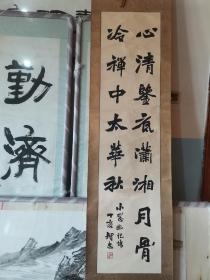 心清鑒底瀟湘月骨
冷禪中太華秋
小窗幽記傳
丁亥
勤
濟